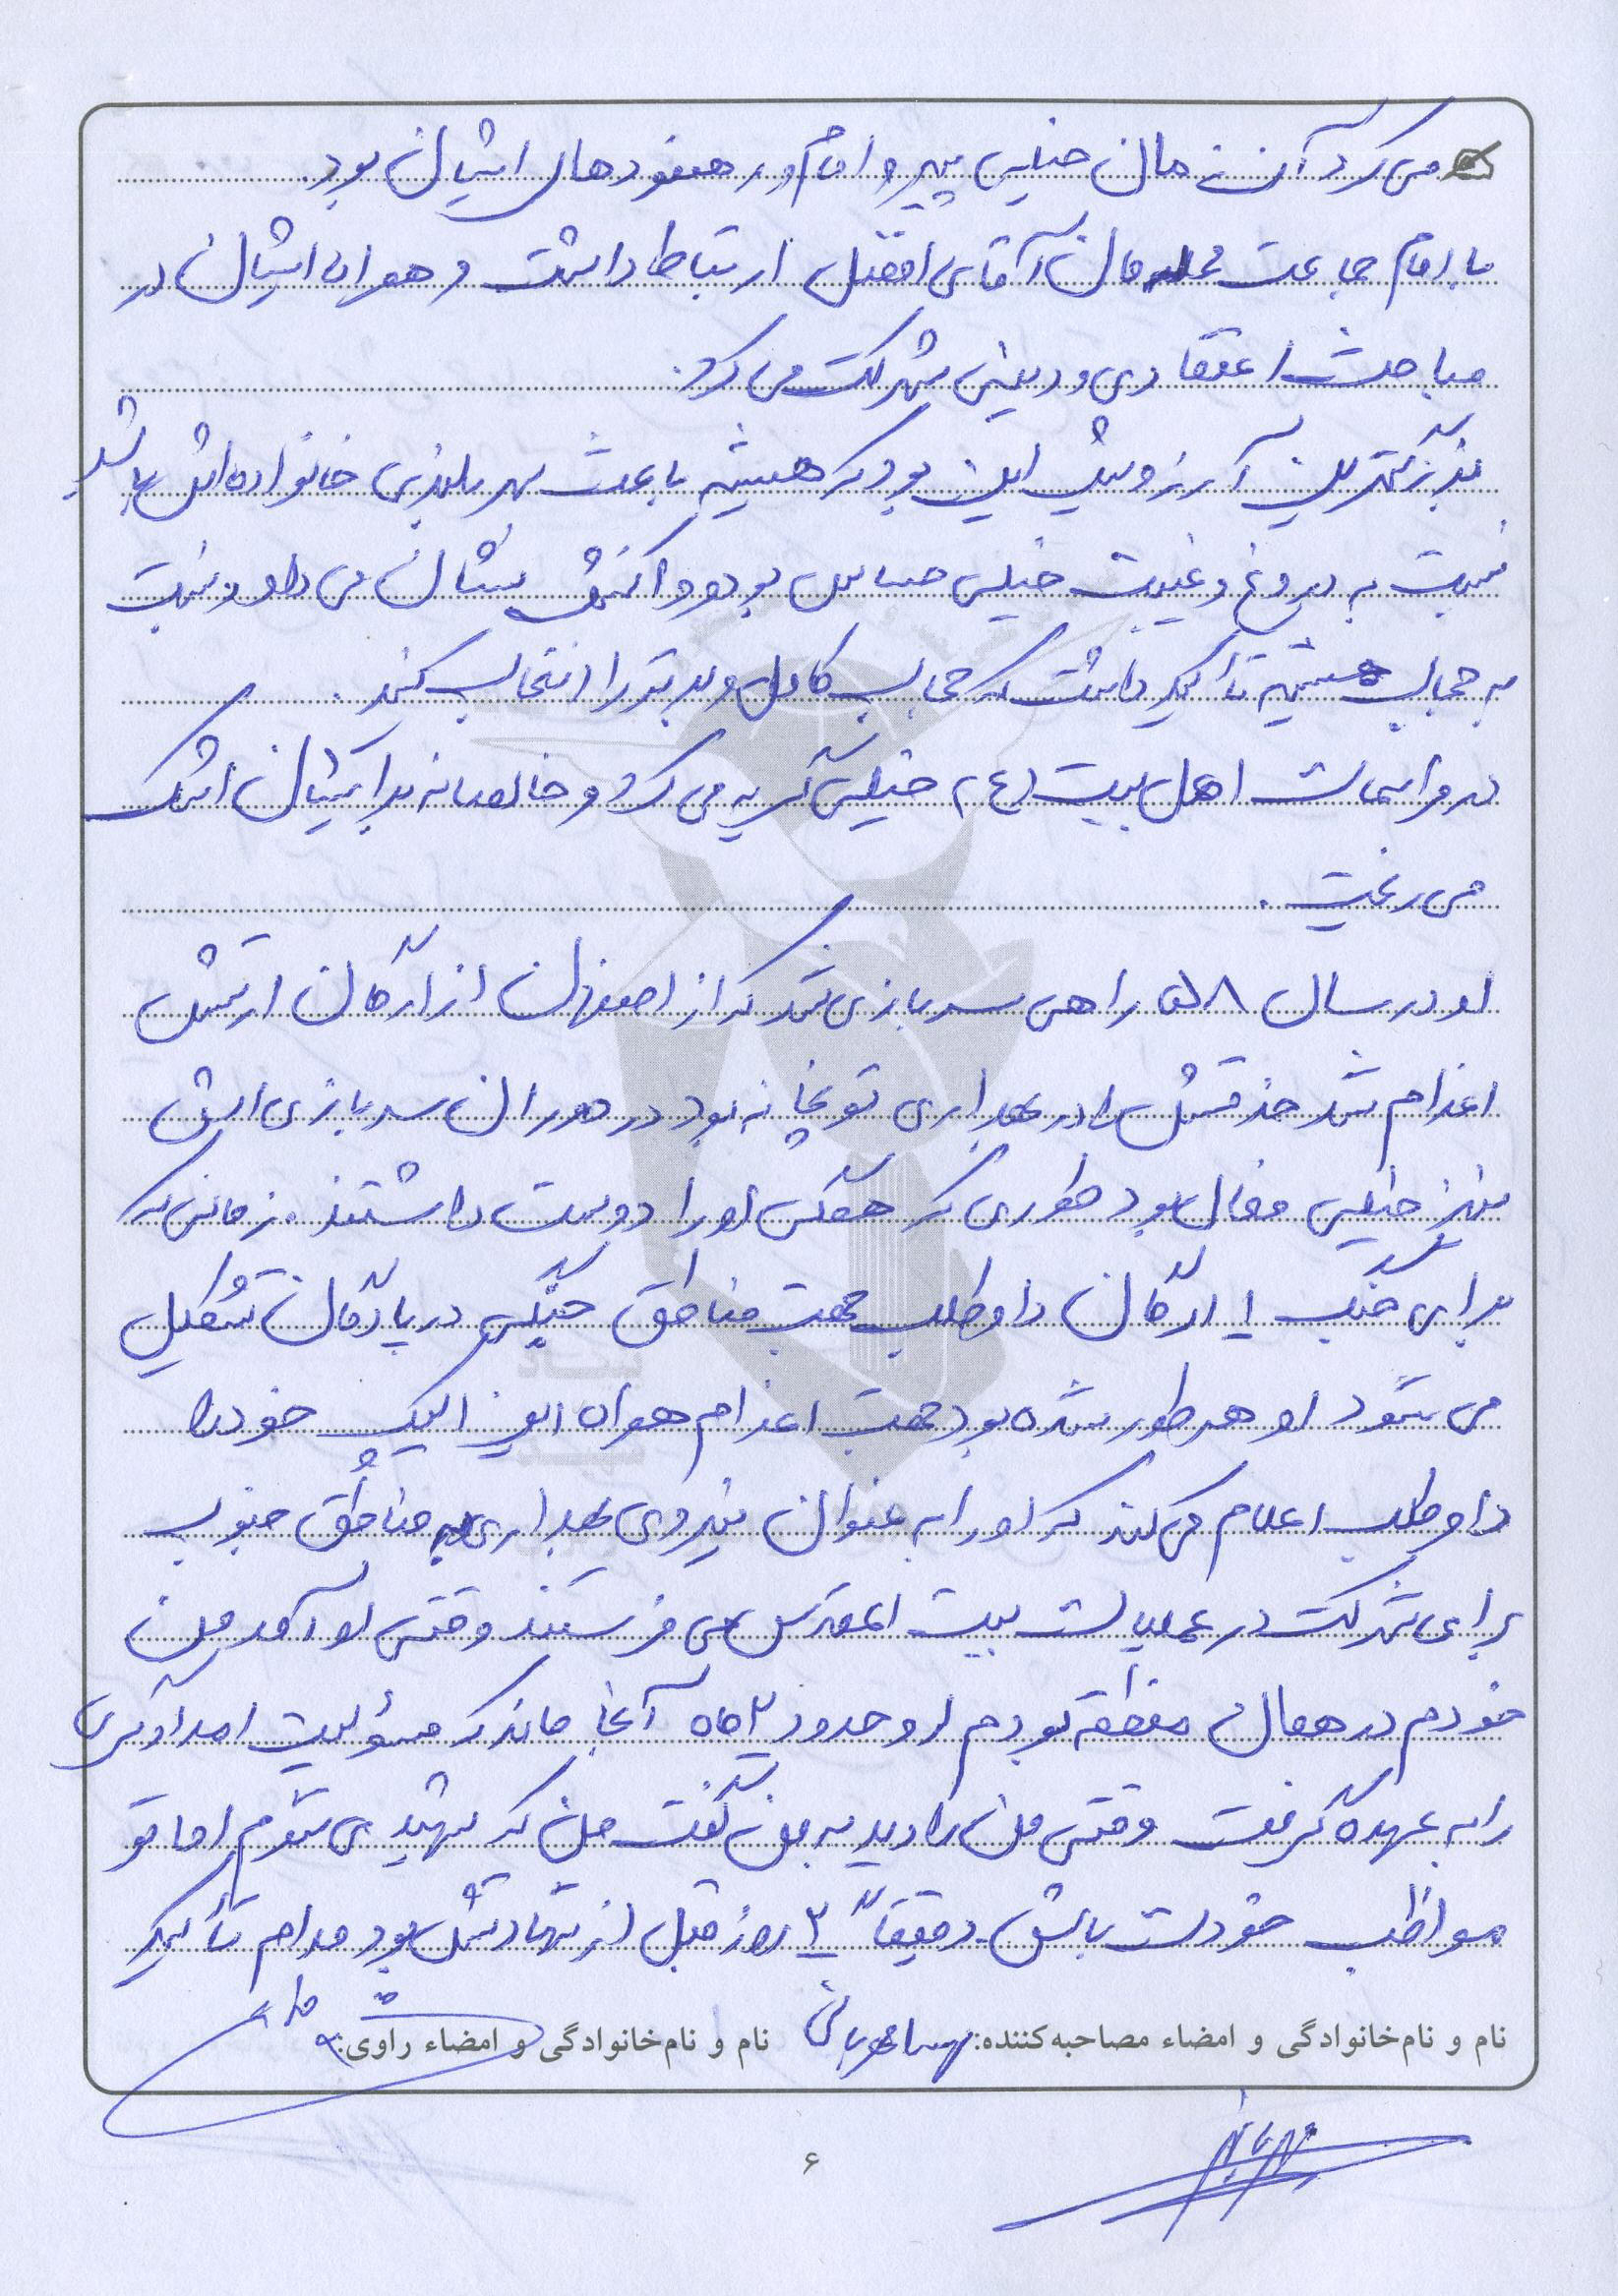 می کرد آن زمان خیلی پیرو امام و رهنمودهای ایشان بود.
با امام جماعت محله مان آقای افضل ارتباط داشت و همراه ایشان در
مباحث اعتقادی و دینی شرکت می کرد.
بزرگترین آرزویش این بود که همیشه باعث سربلندی خانواده اش باشد
نسبت به دروغ و غیبت خیلی حساس بود و واکنش نشان می داد و نسبت
به حجاب همیشه تأکید داشت که حجاب کامل و برتر را انتخاب کنید.
در مراسمات اهل بیت (ع) خیلی گریه می کرد و خالصانه برایشان اشک
می ریخت.
او در سال ۵۸ راهی سربازی شد که از اصفهان از ارگان ارتش
اعزام شد خدمتش در بهداری توپخانه بود در دوران سربازی اش
نیز خیلی فعال بود طوری که همگی او را دوست داشتند. زمانی که
برای جنگ از ارگان داوطلب جهت مناطق جنگی در پادگان تشکیل
می شود او هر طور شده بود جهت اعزام همراه این اکیپ خود را
داوطلب اعلام می کند که او را به عنوان نیروی بهداری به مناطق جنوب
برای شرکت در عملیات بیت المقدس می فرستند وقتی او آمد من
خودم در همان منطقه بودم او حدود ۲ ماه آنجا ماند که مسؤلیت امدادگری
را به عهده گرفت وقتی من را دید به من گفت من که شهید می شوم اما تو
مواظب خودت باش. دقیقاً ۲ روز قبل از شهادتش بود مدام تأکید
نام و نام‌خانوادگی و امضاء مصاحبه‌کننده: نام و نام‌خانوادگی و امضاء راوی:
۶